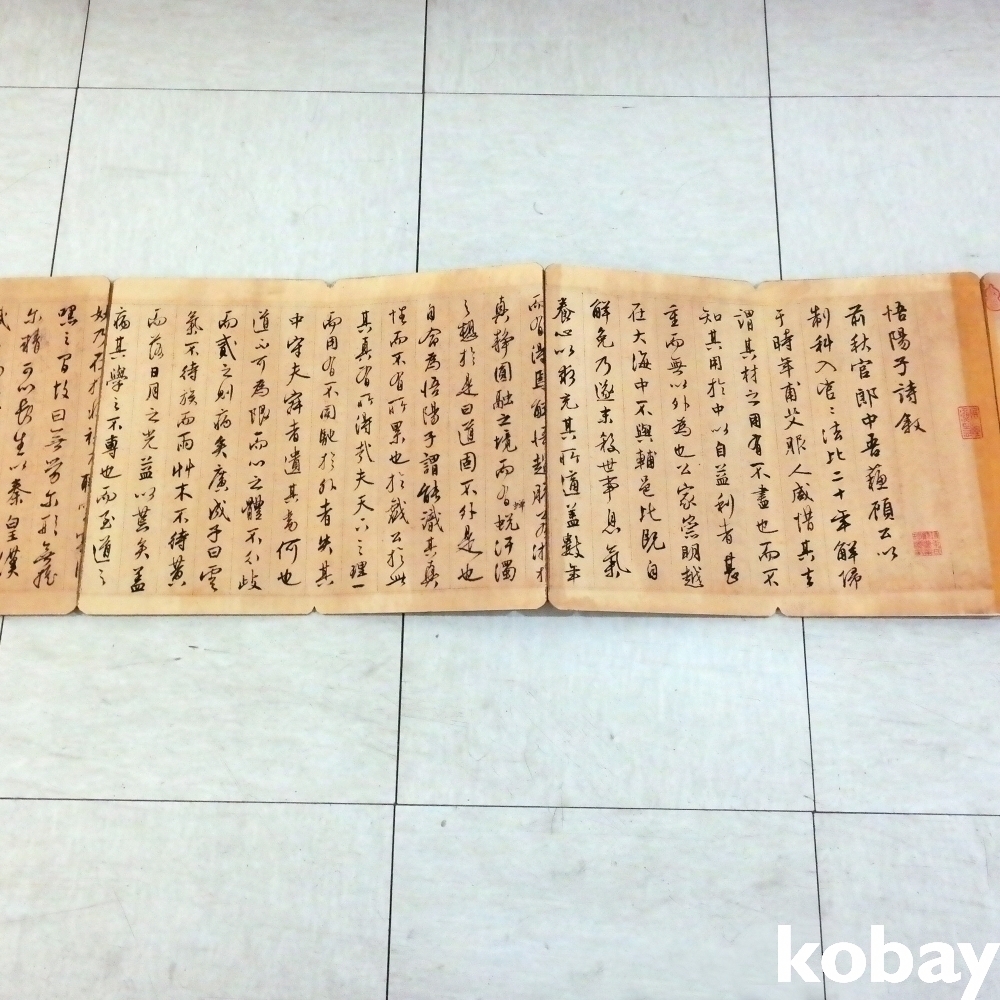 悟陽子詩敘
前秋官郎中吾蘇顧公以
制科入官〻法比二十年解歸
于時年甫艾服人咸惜其去
謂其材之用有不盡也而不
知其用於中以自益利者甚
重而無以外為也公家崇明越
在大海中不與輔邑比既自
解免乃遂末殺世事息氣
養心以務充其所道蓋數年
而有得焉解悟超脫
真靜圓融之境而有蛻汙濁
之趣於是曰道固不外是也
自命為悟陽子謂能識其真
性而不有所累也於戲公於此
其真有所得哉夫天下之理一
而用有不同馳於外者失其
中守夫寂者遺其畫何也
道不可為限而心之體不分歧
而貳之則病矣廣成子曰雲
氣不待族而雨艸木不待黃
而落日月之光益以荒矣蓋
病其學之不專也而至道之
妙乃不
嘿之
故曰無勞爾形無搖
爾精可以長生以秦皇漢
kobay